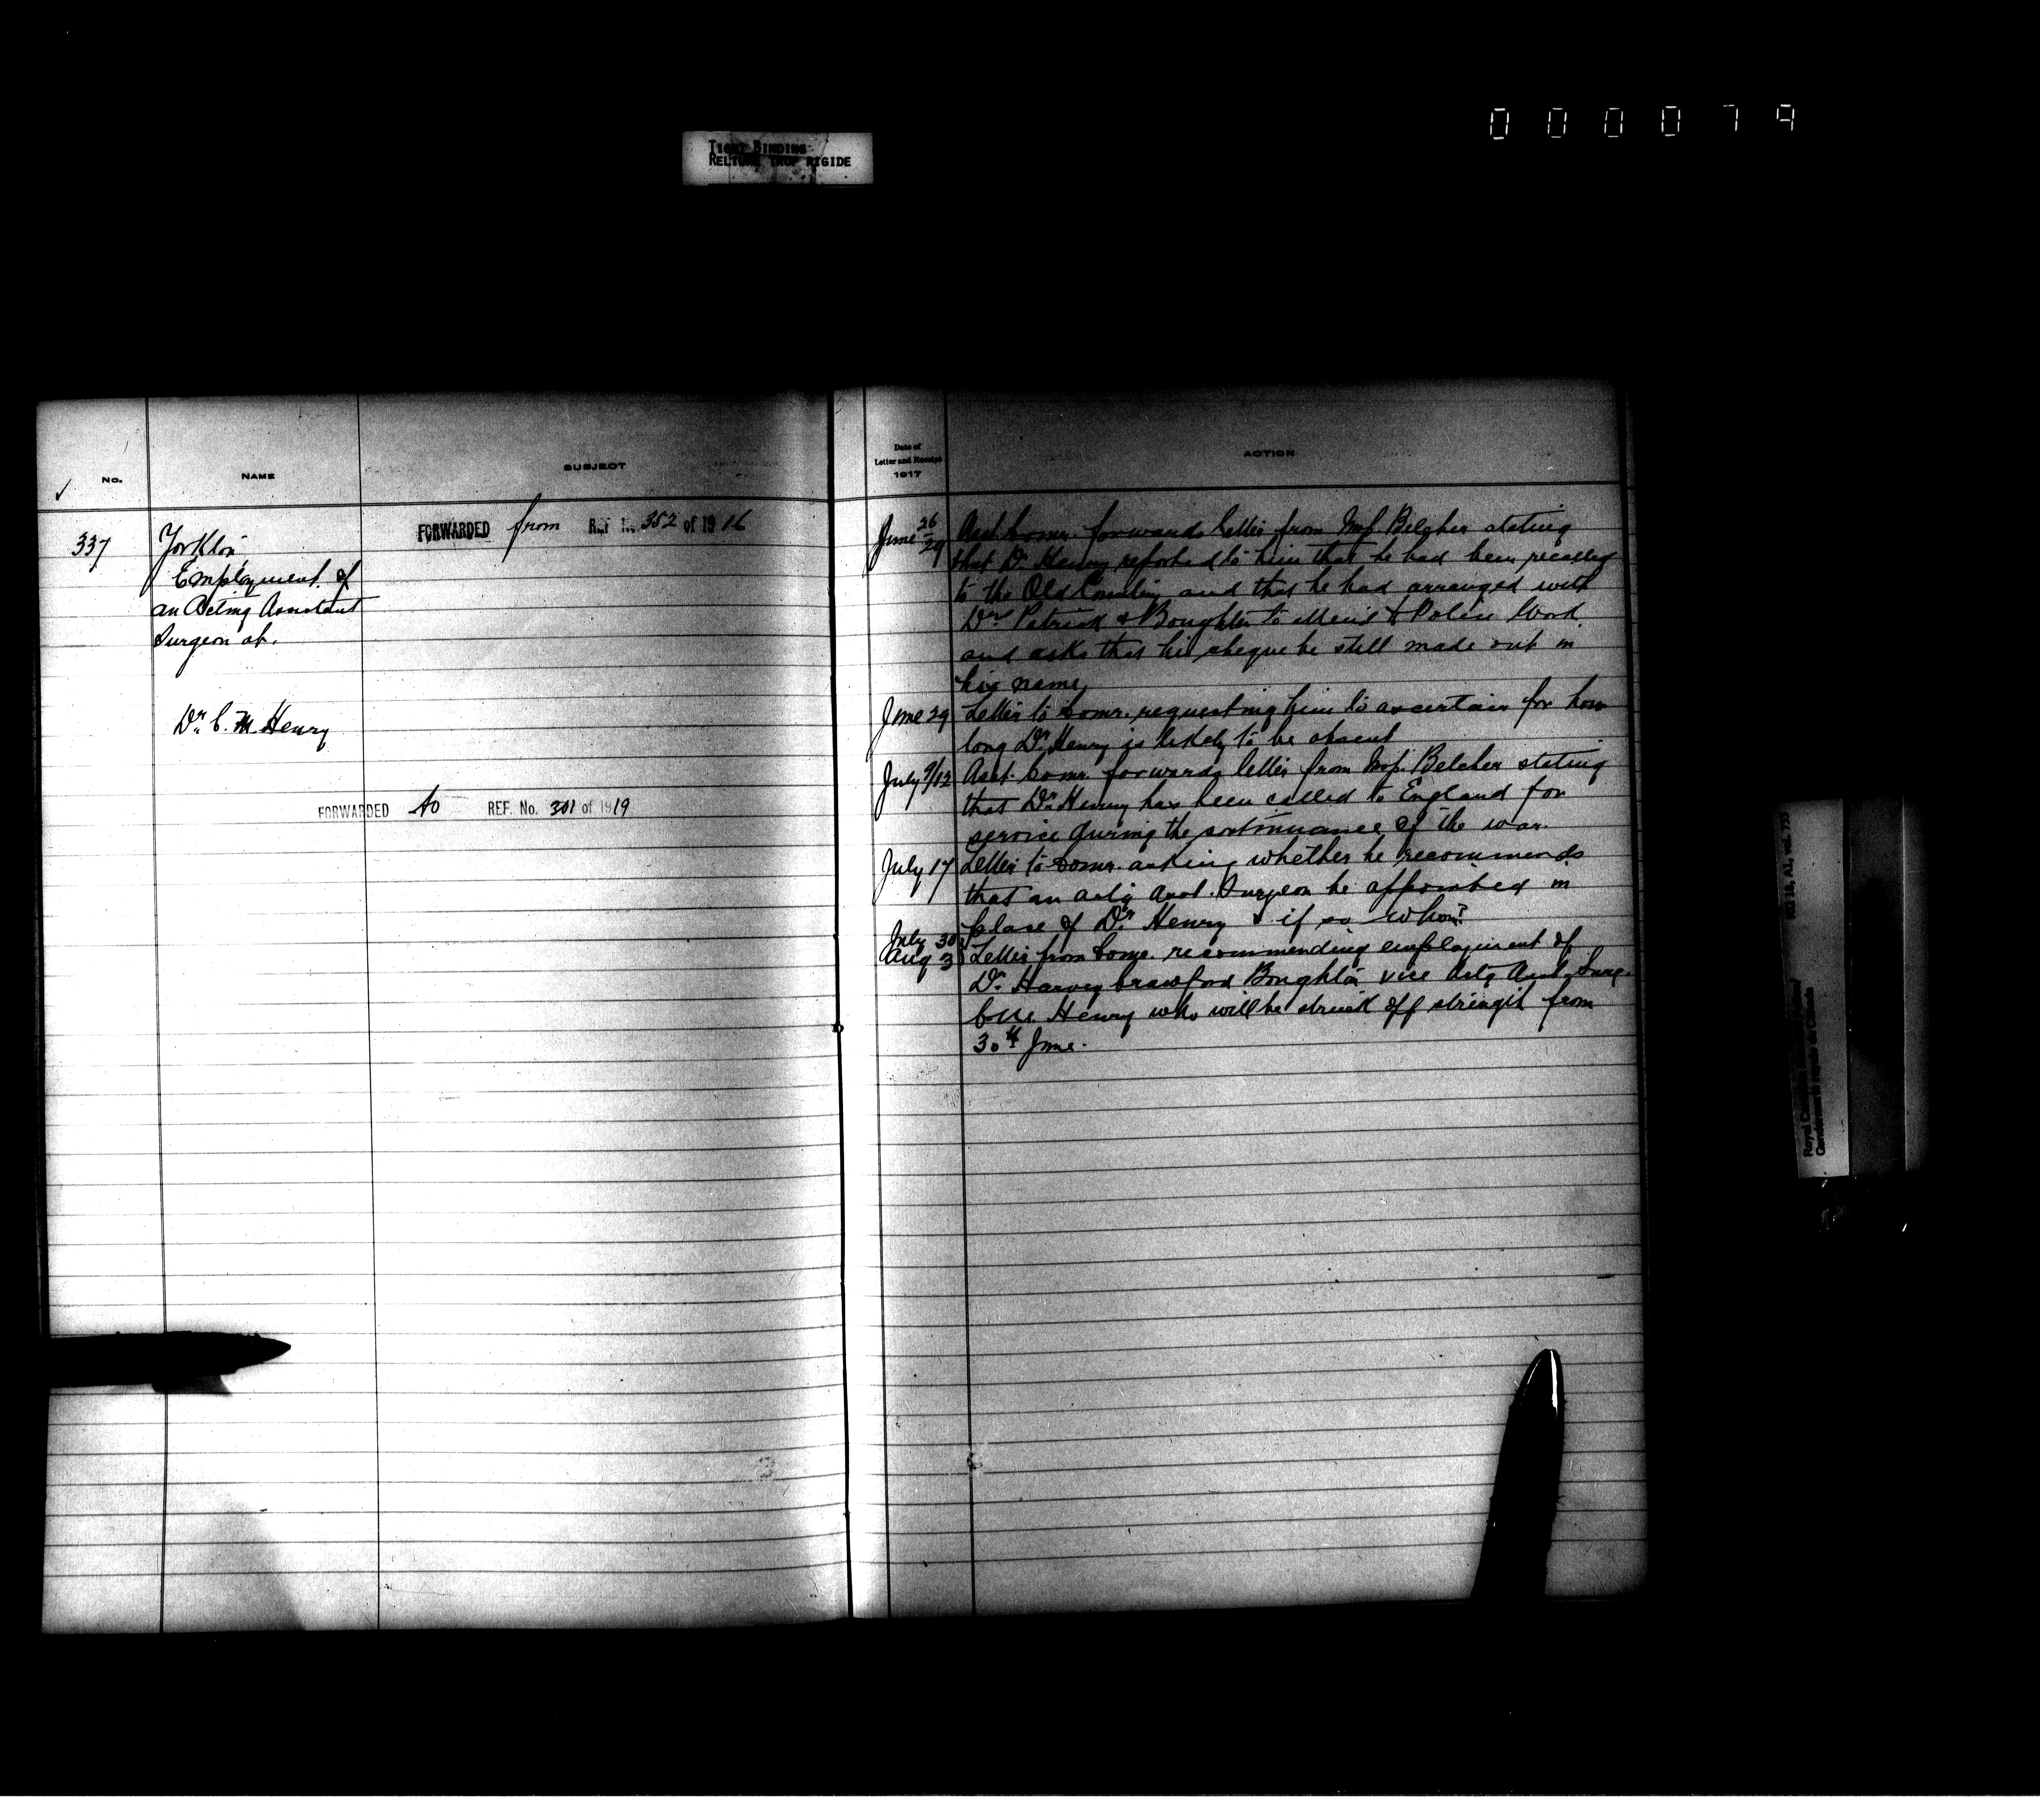 0 0 0 0 7 9
TIGHT BINDING
RELIURE TROP RIGIDE
No.
NAME
SUBJECT
337
Yorkton
Employment of
an Acting Assistant
Surgeon at.
Dr. C. M. Henry
FORWARDED from REF No. 352 of 1916
FORWARDED to REF. No. 301 of 1919
Date of
Letter and Receipt
1917
ACTION
June 26/29 Asst Comr. forwards letter from Insp Belcher stating
that Dr. Henry reported to him that he had been recalled
to the Old Country and that he had arranged with
Drs Patrick & Boughton to attend to Police Work
and asks that his cheque be still made out in
his name
June 29 Letter to Comr. requesting him to ascertain for how
long Dr. Henry is likely to be absent
July 9/12 Asst. Comr. forwards letter from Insp. Belcher stating
that Dr. Henry has been called to England for
service during the continuance of the war.
July 17 Letter to Comr. asking whether he recommends
that an actg Asst. Surgeon be appointed in
place of Dr. Henry & if so whom?
July 30
Aug 3 Letter from Comr. recommending employment of
Dr. Harvey Crawford Boughton vice Actg Asst. Surg.
C. M. Henry who will be struck off strength from
30th June.
RG 18, A1, vol. 733
Gouvernement royale du Canada